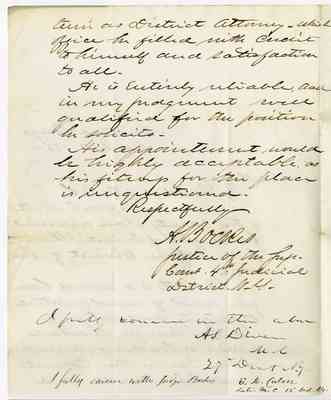 term as District Attorney - which
office he filled with credit
to himself and satisfaction
to all.
He is entirely reliable, and
in my judgment well
qualified for the position
he solicits.
His appointment would
be highly acceptable, as
his fitness for the place
is unquestioned.
Respectfully
A. Bockes
Justice of the Sup.
Court 4th Judicial
District N.Y.
I fully concur in the above
A S Diven
M C
27th Dist NY
I fully concur with Judge Bockes
late M. C. 15